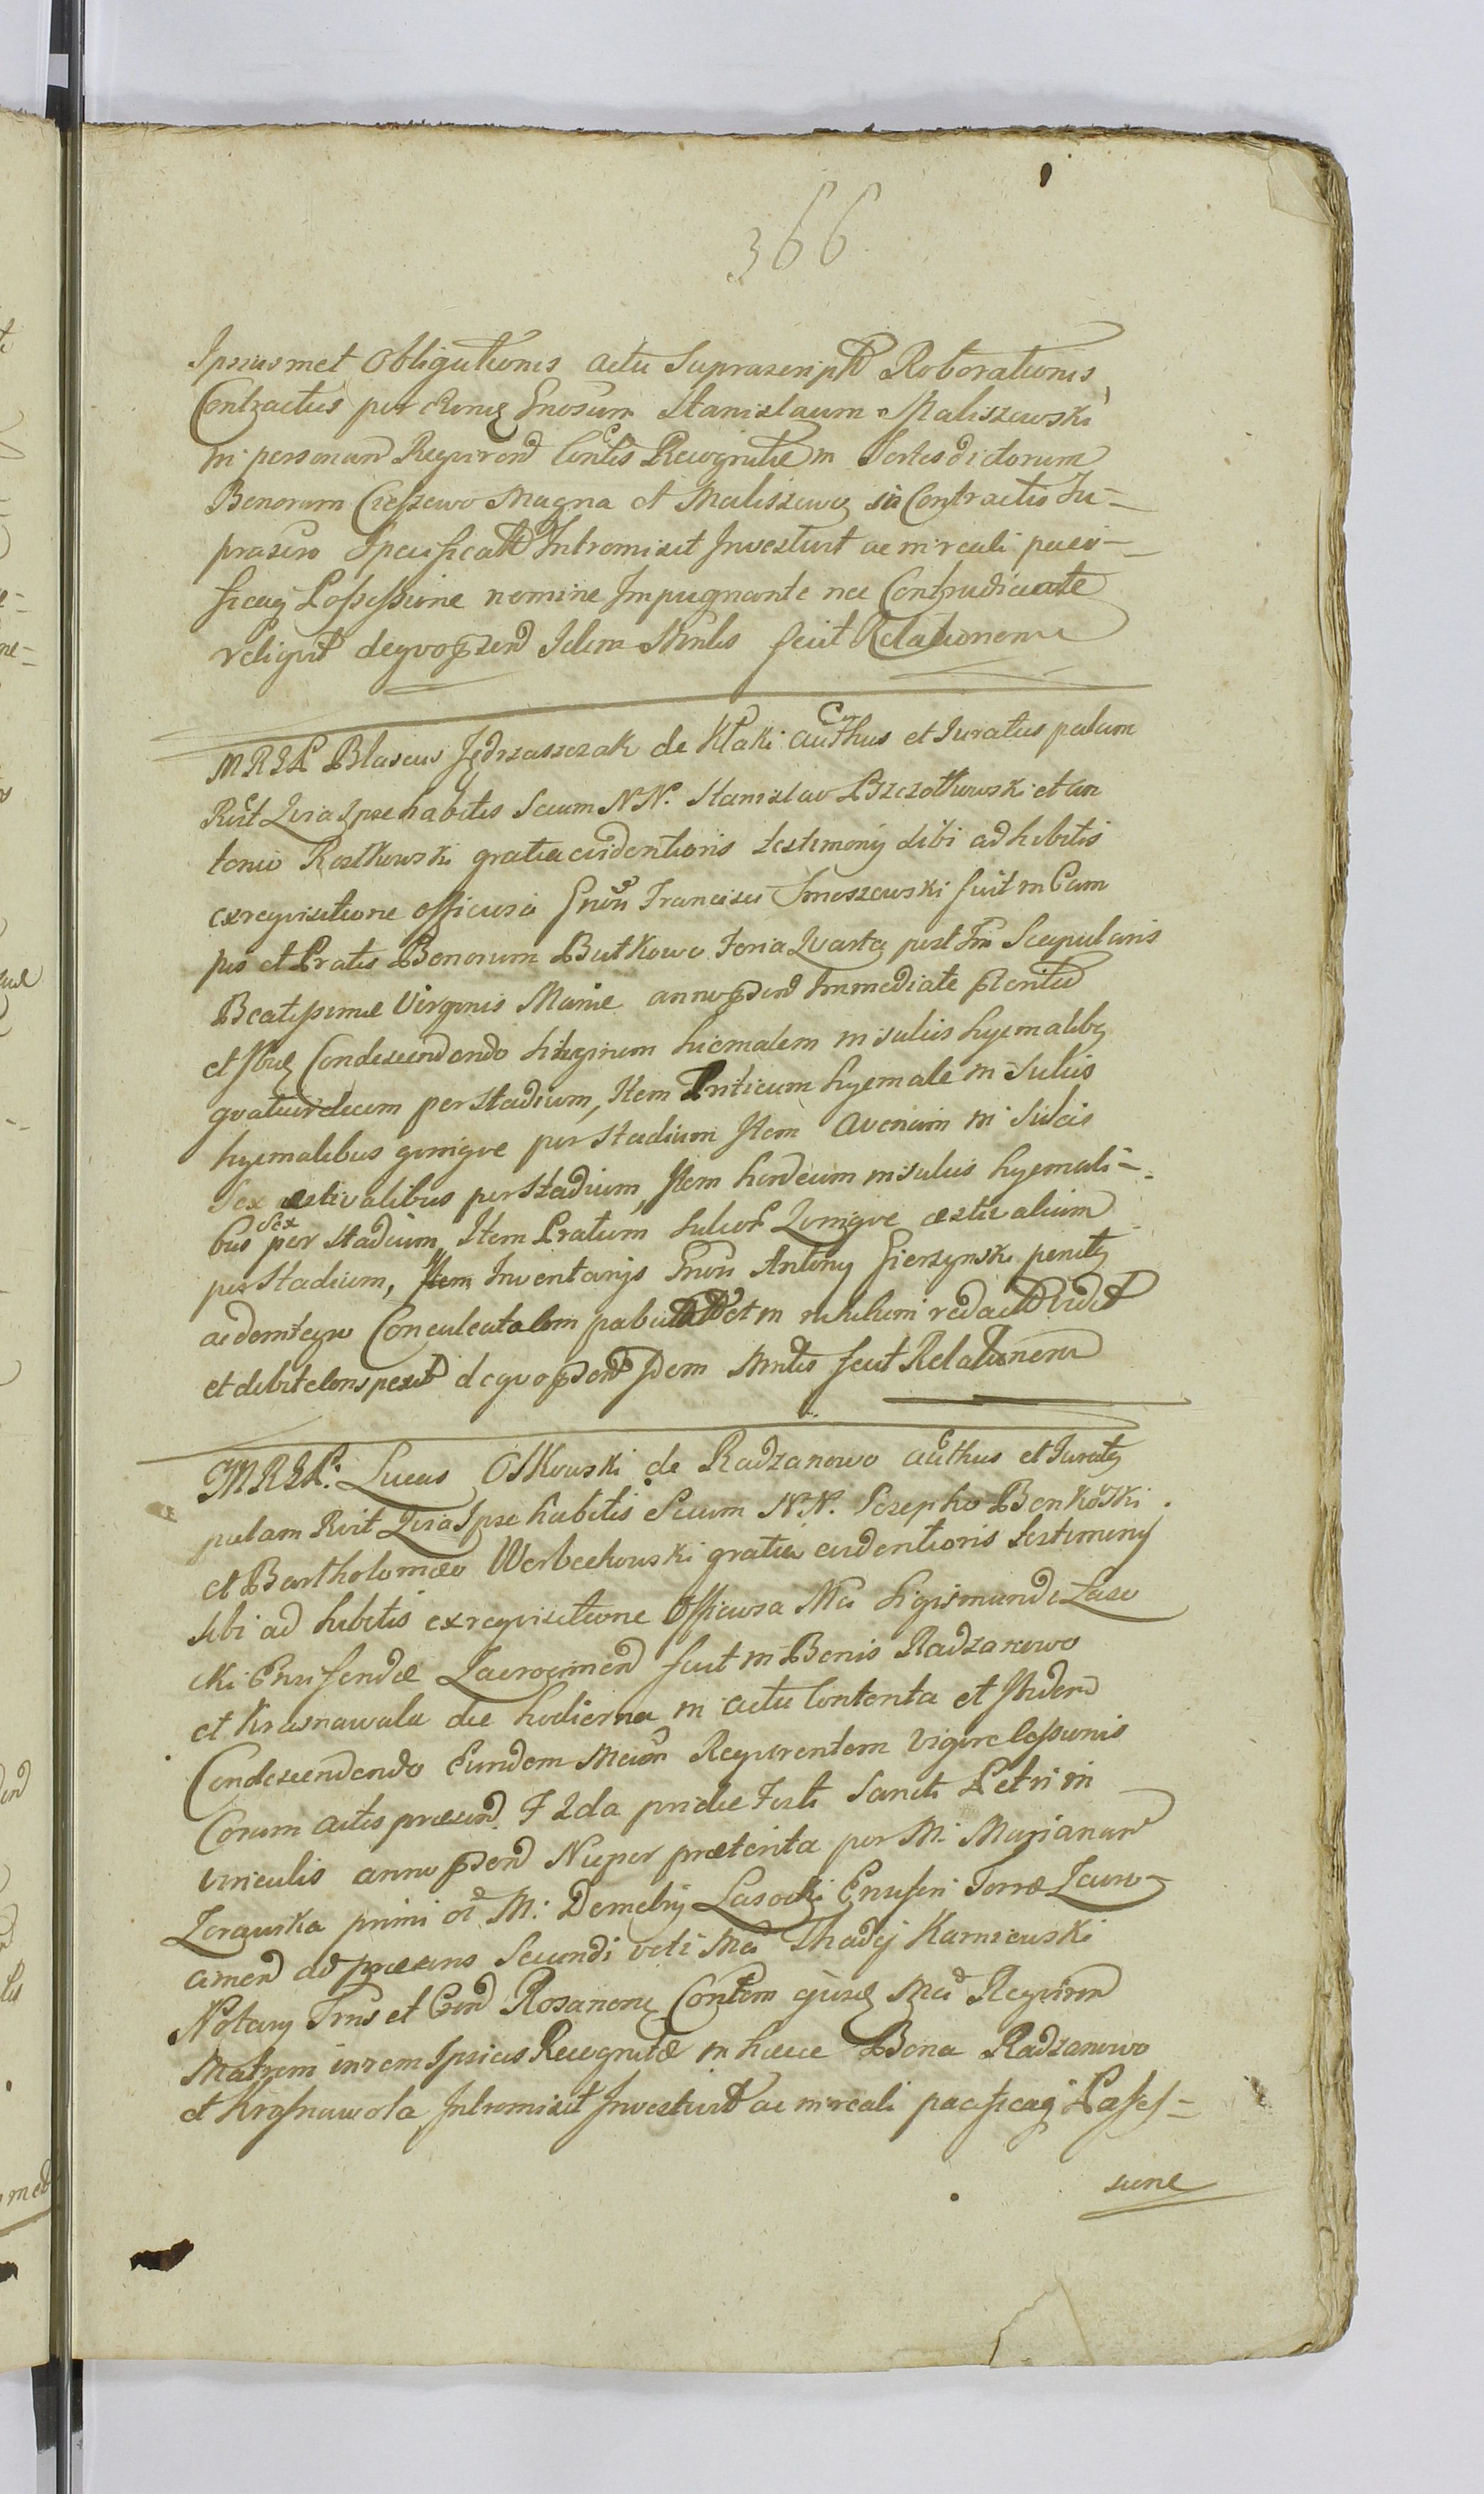 366
Ipsiusmet Obligationis actu Suprascript Roborationis
Contractus per eund Gnosum Stanislaum Maliszewski
in personam Requirend Contis Recognitae in Sortes dictorum
Bonorum Cieszewo Magna et Maliszewo in Contractu Su-
prascro Specificatt Intromisit Investivit ac in reali paci-
ficaq Possessione nemine Impugnante nec Contradicente
reliquit dequo psend Idem Mnlis fecit Relationem
MREL Blasius Jędrzaszczak de Kłaki authus et Juratus palam
Rcit Quia Ipse habitis Secum NN. Stanislao Pszczołkowski et An
tonio Rostkowski gratia evidentioris testimonij sibi adhibitis
ex requisitione officiosa Gnosi Francisci Smoszewski fuit in Cam
pis et Pratis Bonorum Butkowo Feria Quarta post Fm Scapularis
Beatissimae Virginis Mariae anno psend Immediate pterita
et Ibiq Condescendendo Siliginem hiemalem in sulcis hyemalibq
quatuordecim per stadium, Item Triticum hyemale in Sulcis
hyemalibus quinque per stadium Item Avenam in Sulcis
Sex aestivalibus per Stadium, Item hordeum in sulcis hyemali-
bus Sex per Stadium, Item Pratum Sulcor Quinque aestivalium
per Stadium, Item Inventarijs Gnosi Antonij Gierzynski penitq
ac demteque Conculcat alem pabulatt et in nihilum redactt Vidit
et debite Conspexit dequo psend Idem Mnlis fecit Relationem
MREL. Lucas Osłkowski de Radzanowo authus et Juratq
palam Rcit Quia Ipse habitis Secum NN. Josepho Bonkoski
et Bartholomaeo Werbechowski gratia evidentioris testimonij
sibi adhibitis ex requisitione Officiosa Mci Sigismundi Laso
cki Ensifendae Zacrocimen fuit in Bonis Radzanowo
et Krasnawola die hodierna in actu Contenta et Ibidem
Condescendendo Eundem Mcum Requirentem Vigore Cessionis
Coram actis praesen F 2da pridie Festi Sancti Petri in
Vinculis anno psend Nuper praeterita per M. Mariannam
Zorawska primi ol M. Demetrij Lasocki Ensiferi Terrae Zacro-
cimen ad praesens Secundi voti Mci Thadej Karniewski
Notarij Trris et Cas Rosanen Contem ejusq Mci Requiren
Matrem in rem Ipsius Recognitae in haece Bona Radzanowo
et Krasnawola Intromisit Investivit ac in reali pacificaq Posses-
sione